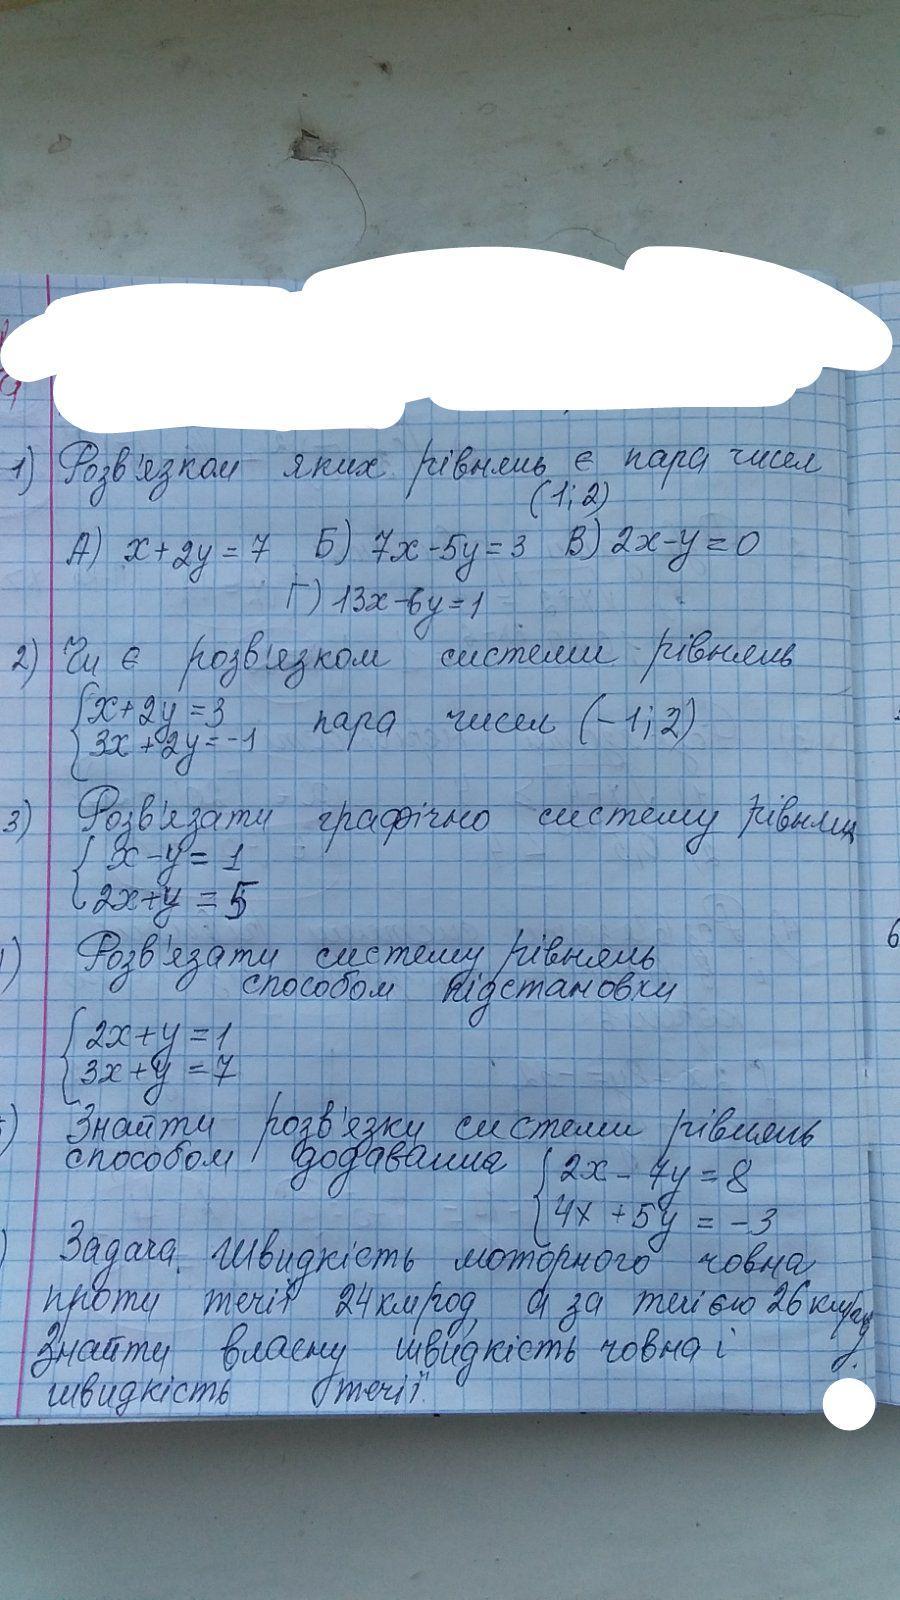 1) Розв'язком яких рівнянь є пара чисел
(1; 2)
А) x + 2y = 7 Б) 7x - 5y = 3 В) 2x - y = 0
Г) 13x - 6y = 1
2) Чи є розв'язком системи рівнянь
{x + 2y = 3
3x + 2y = -1 пара чисел (-1; 2)
3) Розв'язати графічно систему рівнянь
{x - y = 1
2x + y = 5
) Розв'язати систему рівнянь
способом підстановки
{2x + y = 1
3x + y = 7
) Знайти розв'язки системи рівнянь
способом додавання {2x - 7y = 8
4x + 5y = -3
) Задача. Швидкість моторного човна
проти течії 24 км/год, а за течією 26 км/год
Знайти власну швидкість човна і
швидкість течії.
6